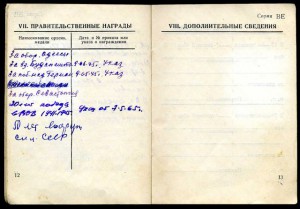 Серия ВЕ
VII. ПРАВИТЕЛЬСТВЕННЫЕ НАГРАДЫ
Наименование орден. медали
Дата и № приказа или указа о награждении
За обор. Одессы
За вз. Будапешта 9.06.45. Указ
За победу Герман 9.05.45. Указ
За обор. Севастополя
20 лет победы
в ВОВ 1941-1945. Указ от 7.5.65г.
лет вооруж
сил СССР
12
VIII. ДОПОЛНИТЕЛЬНЫЕ СВЕДЕНИЯ
13